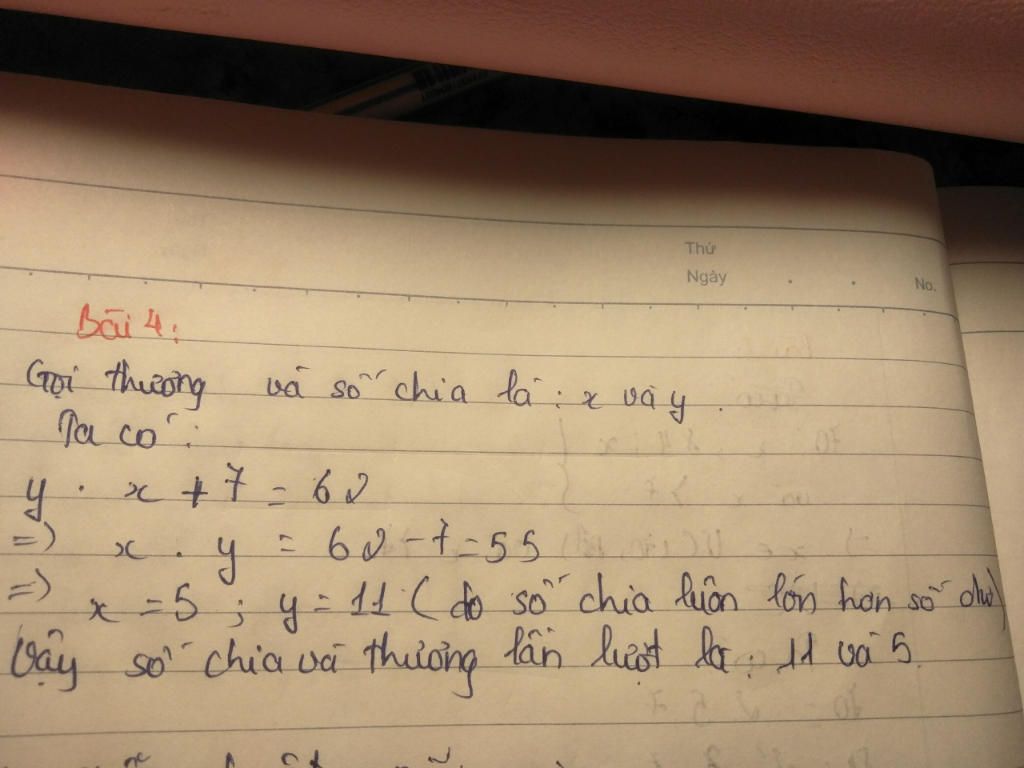 Thứ
Ngày
No.
Bài 4:
Gọi thương và số chia là : x và y .
Ta có :
y . x + 7 = 62
=) x . y = 62 - 7 = 55
=) x = 5 ; y = 11 ( do số chia luôn lớn hơn số dư)
Vậy số chia và thương lần lượt là : 11 và 5.